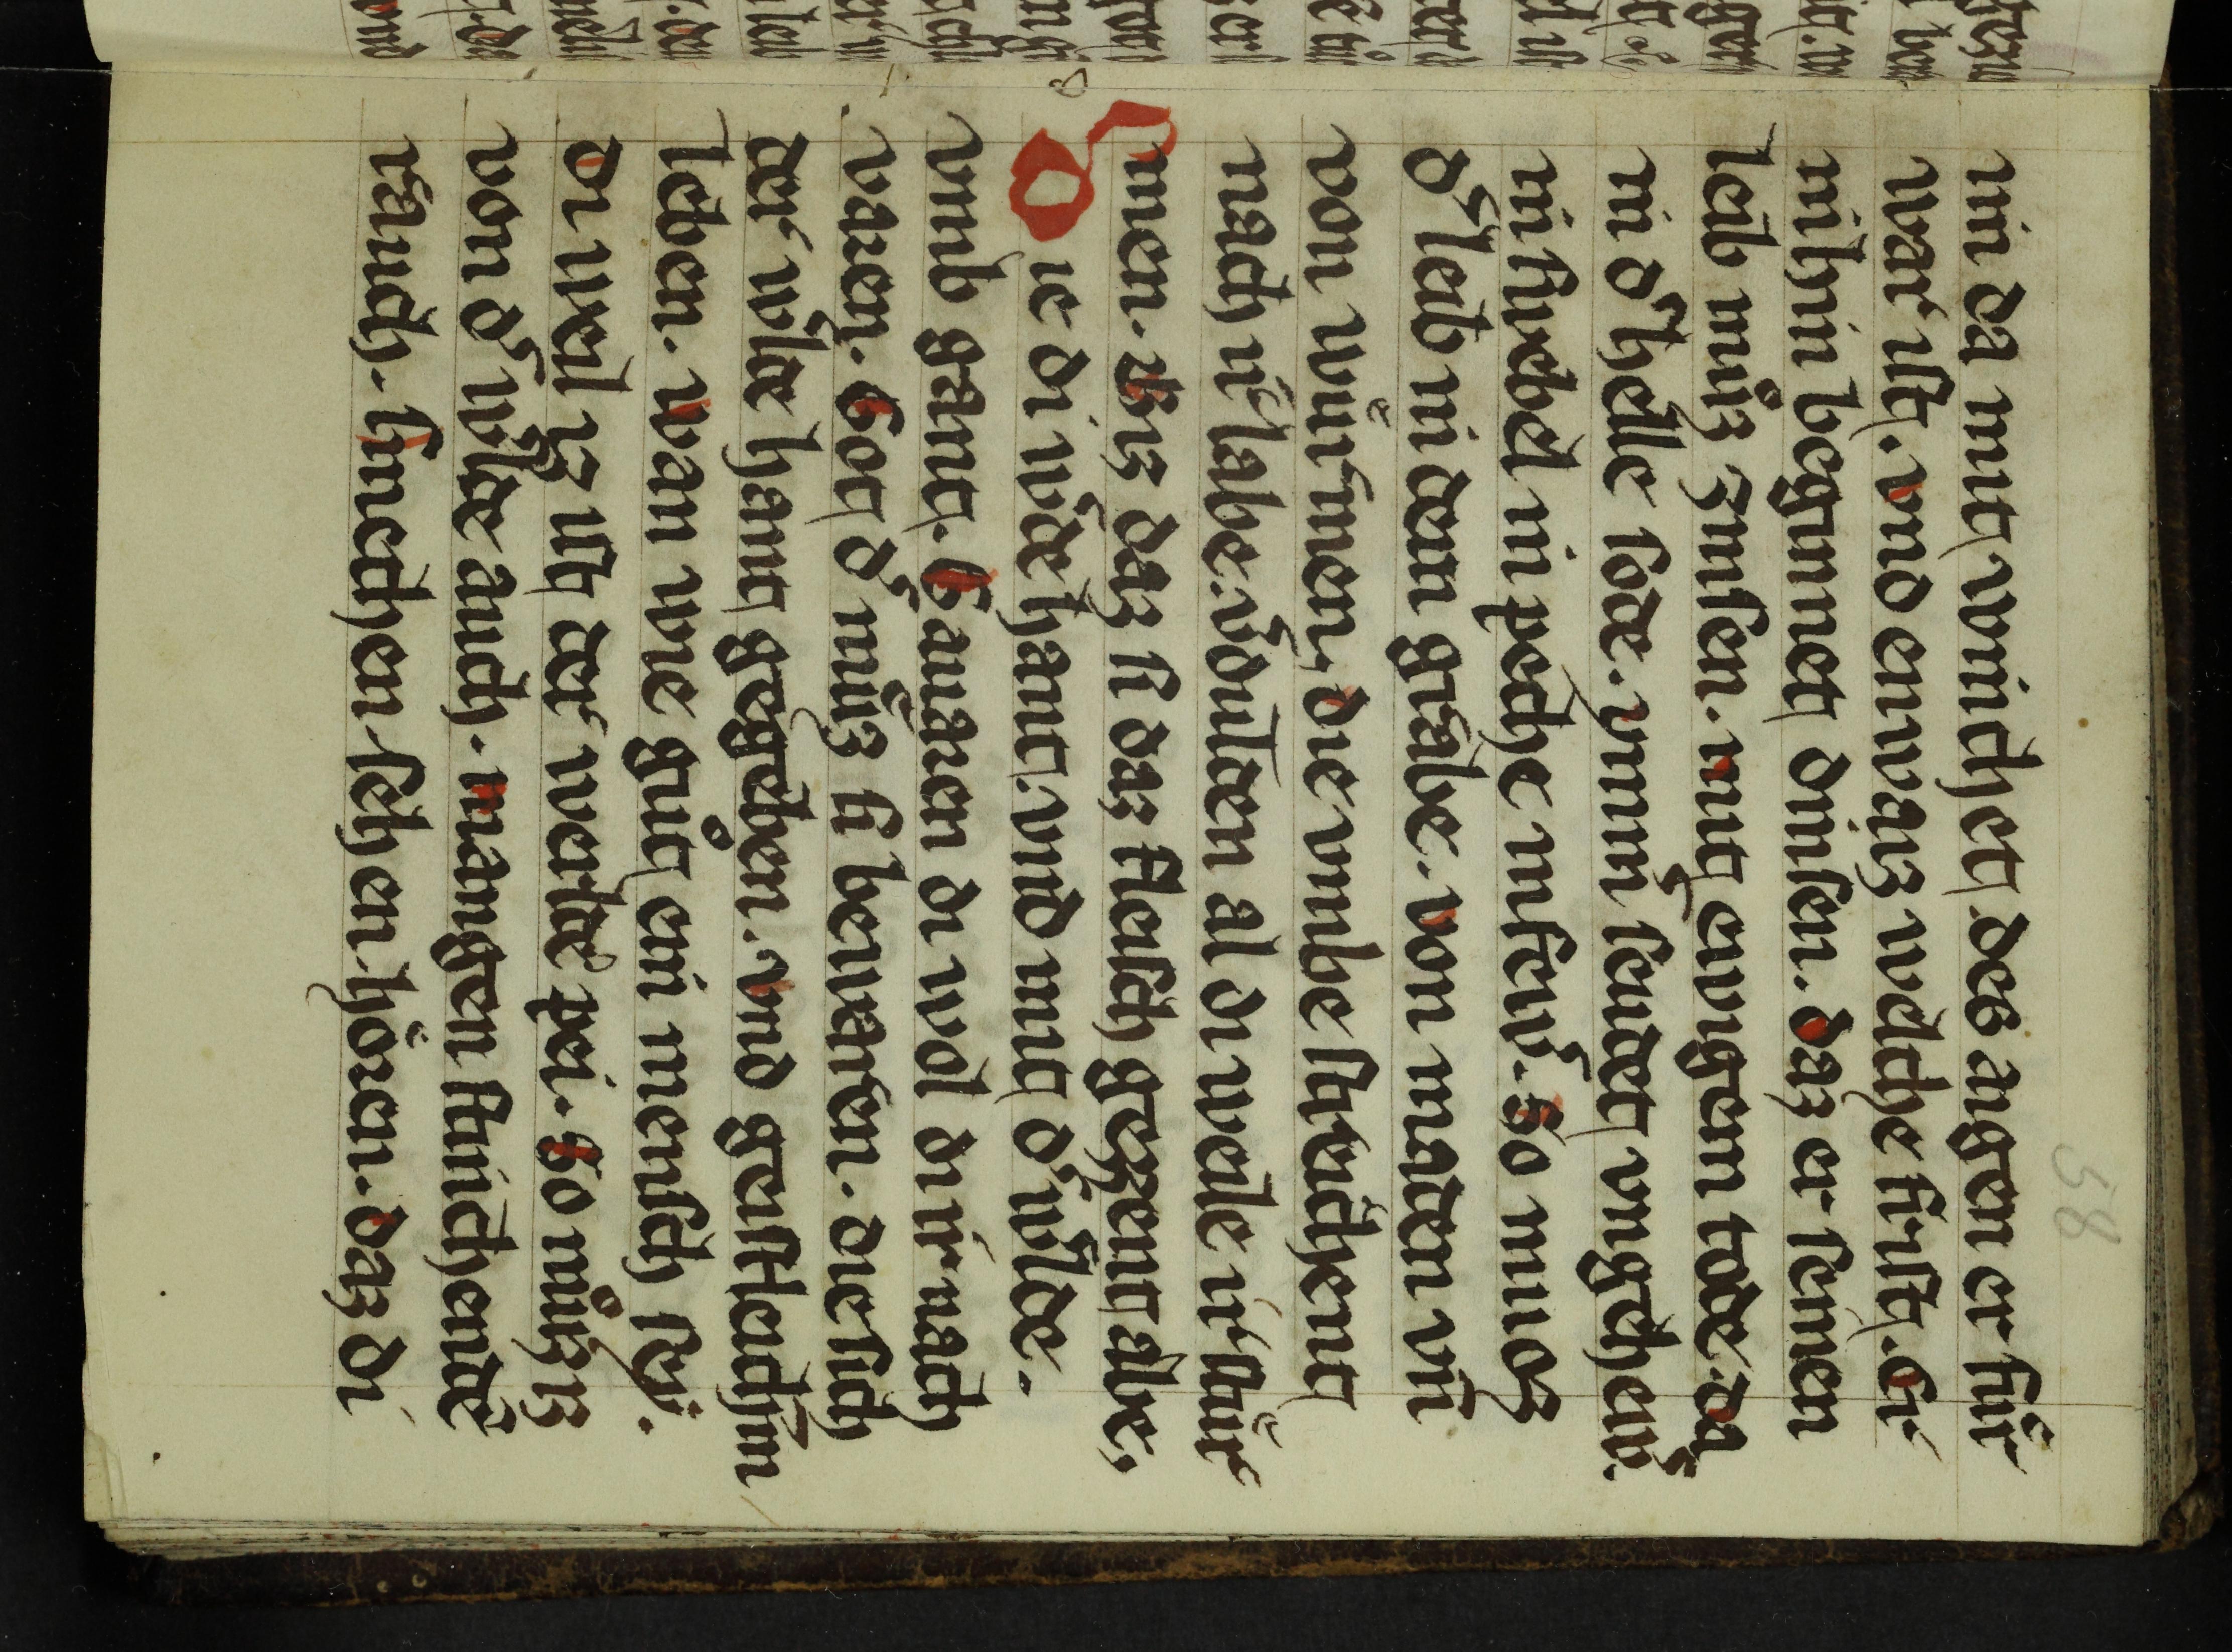 nin da mit wirichet des augen er hin
war ist. vnd enwaiz welche frist. Er
in hin beginnet dinsen. daz er sinen
leib muͦz zinsen. mit ewigem tode. da
in dˢ helle sode. ynnn seudet vngehewˢ.
in swebel in peche in fewˢ. So muoz
dˢ leib in dem grabe. von maden vn̄
von wuͤrmen. die vmbe streichent
nach irˢ labe. vˢdulden al di weile irˢ stuͤr
men. Biz daz si daz fleisch gezzent abe.
Die di wˢde hant. vnd mit dˢ wˢlde.
vmb gant. Gawaren di wol dir nach
varen. Got dˢ muͦz si bewaren. die sich
der wˢlde hant gegeben. vnd geistleichm
leben. wan wie guͦt ein mensch sey.
di weil iz ist der werlde pei. So muͦz iz
von dˢ wˢlde auch. mangen stinchende
rauch. smechen sehen hören. daz di
58